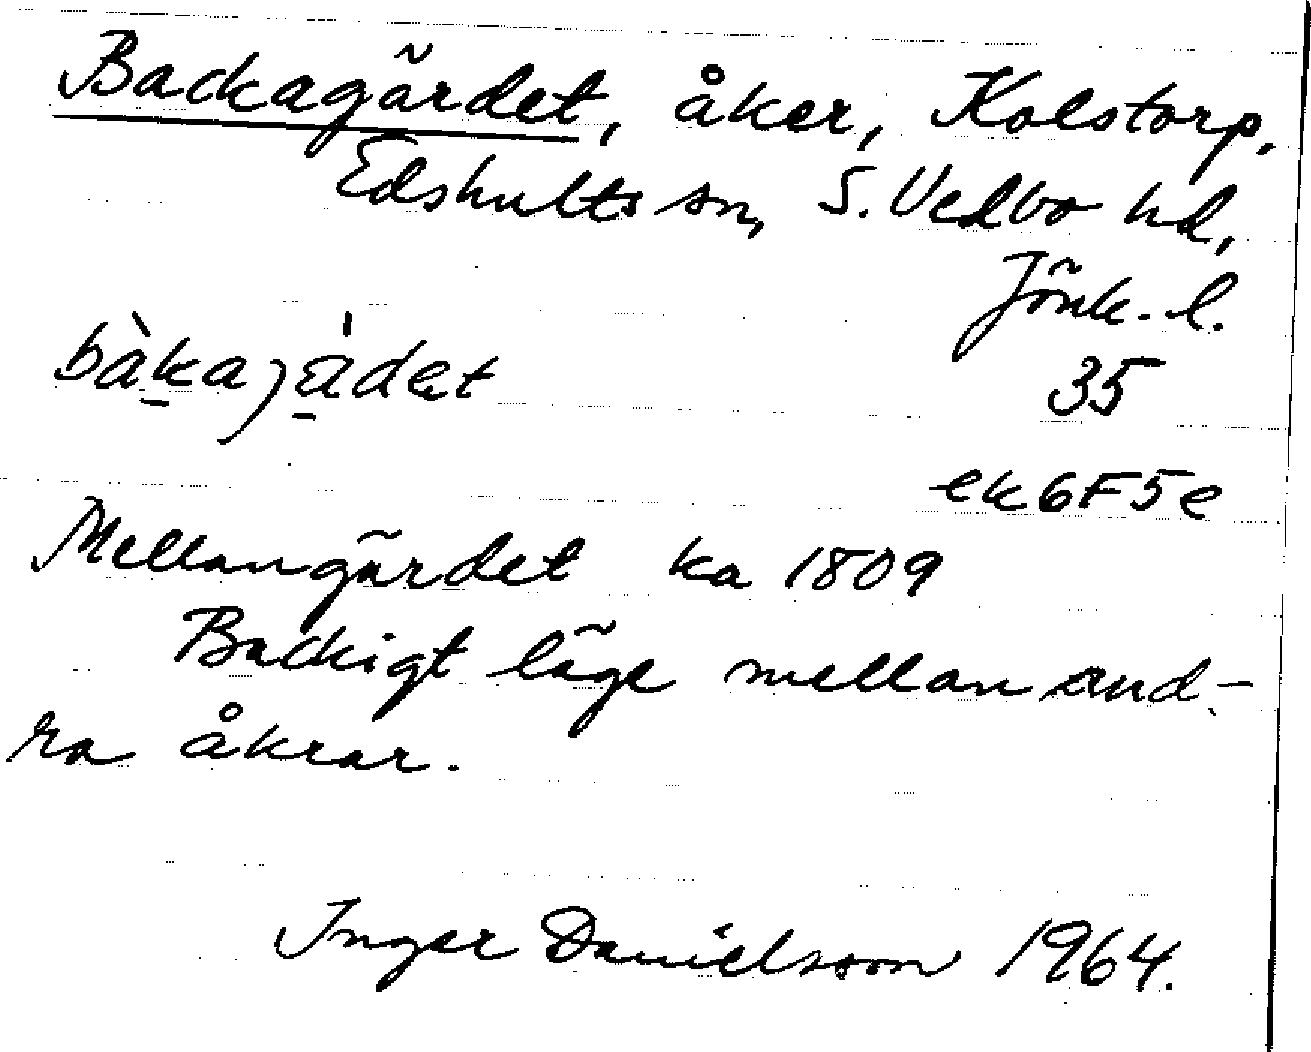 Backagärdet, åker, Kolstorp,
Edshults sn, S. Vedbo hd,
Jönk. l.
bàka jä̀dat
35
ek6F5e
Mellangärdet ka 1809
Backigt läge mellan and-
ra åkrar.
Inger Danielsson 1964.